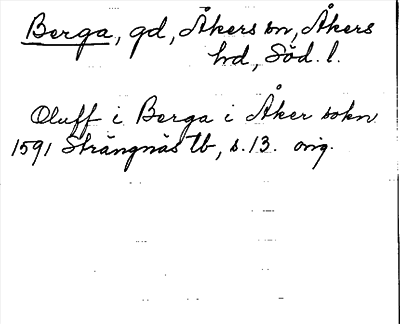 Berga, gd, Åkers sn, Åkers
hd, Söd. l.
Oluff i Berga i Åker sokn
1591 Strängnäs tb, s. 13. orig.